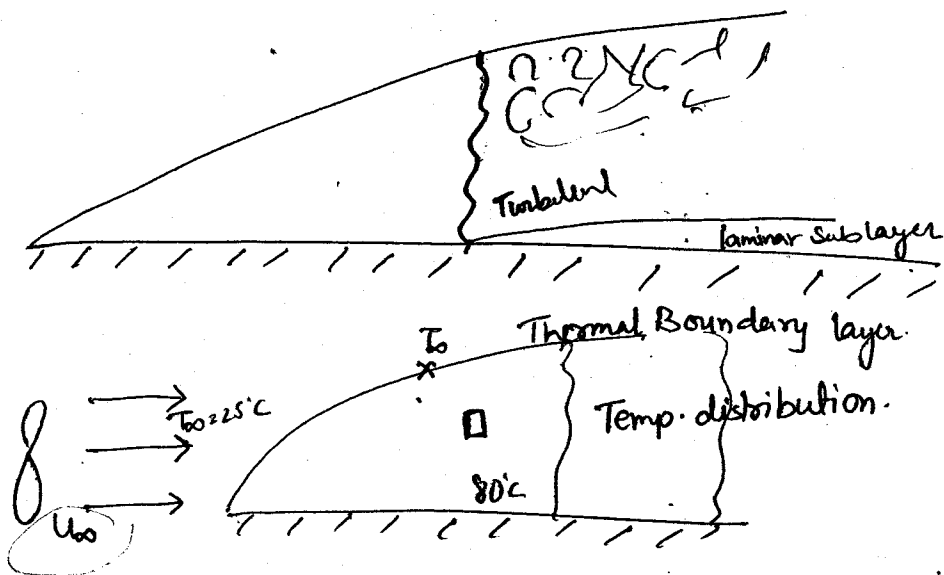 Turbulent
laminar sublayer
Thermal Boundary layer.
T∞
T∞=25°C
Temp. distribution.
80°C
U∞